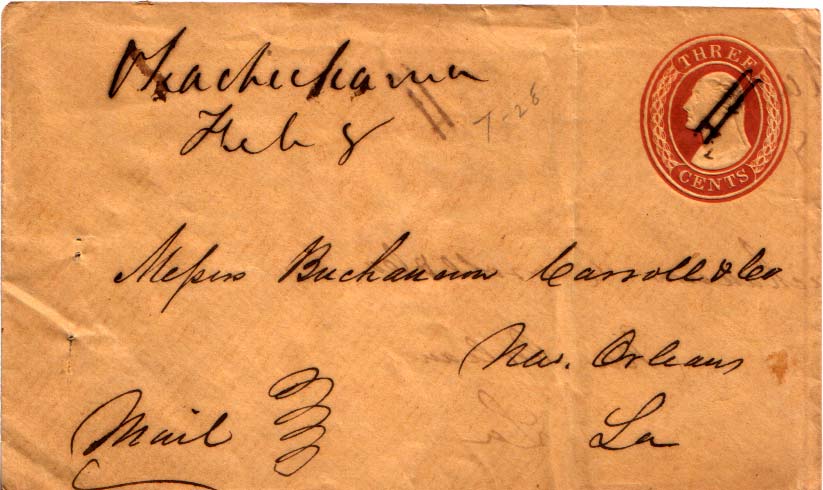 Okachickama
Feb 8
7-28
THREE
CENTS
Messrs Buchannon Carroll & Co
New. Orleans
Mail
La